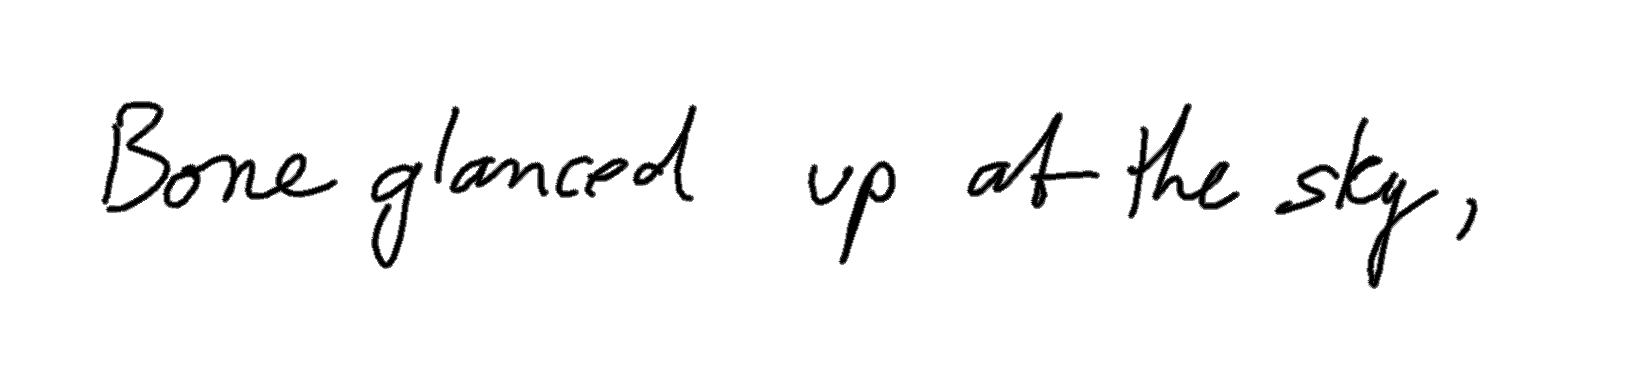 Bone glanced up at the sky,